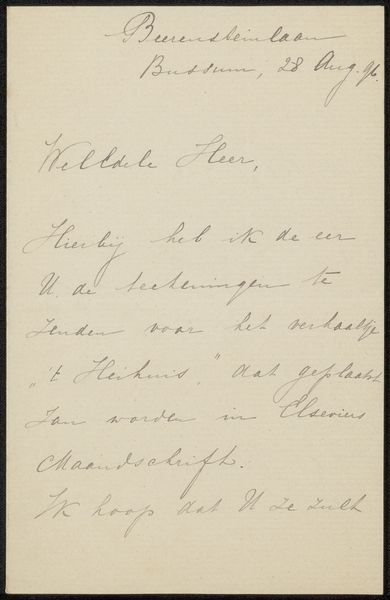 Beerensteinlaan
Bussum, 28 Aug. 96.
WelEdele Heer,
Hierbij heb ik de eer
U. de teekeningen te
zenden voor het verhaaltje
„'t Heihuis," dat geplaatst
zan worden in Elseviers
Maandschrift.
Ik hoop dat U ze zult